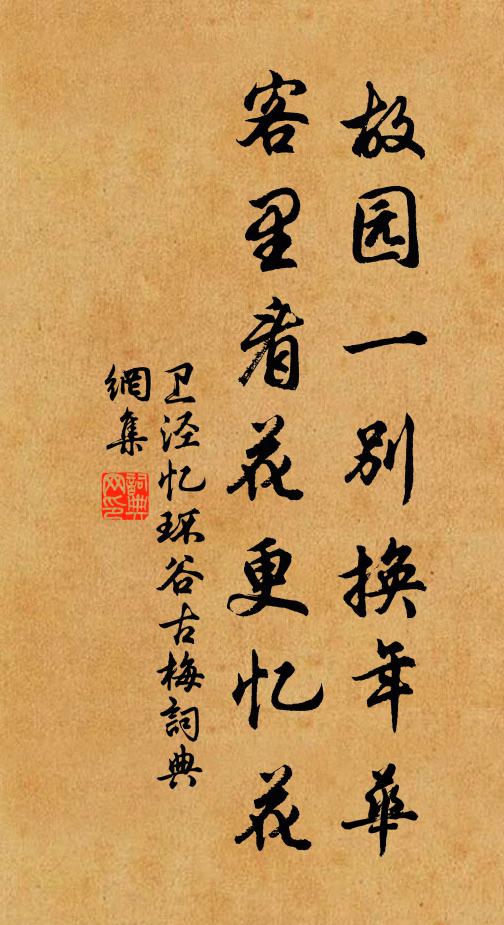 故园一别换年华
客里看花更忆花
卫泾忆环谷古梅詞典
網集
詞典
网印